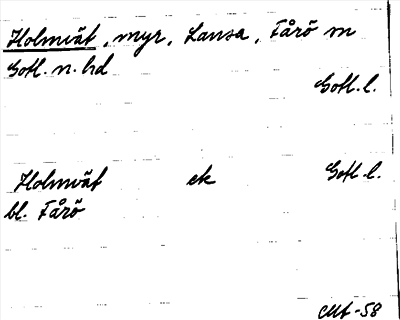 Holmvät, myr, Lansa, Fårö sn
Gotl. n. hd
Gotl. l.
Holmvät ek Gotl. l.
bl. Fårö